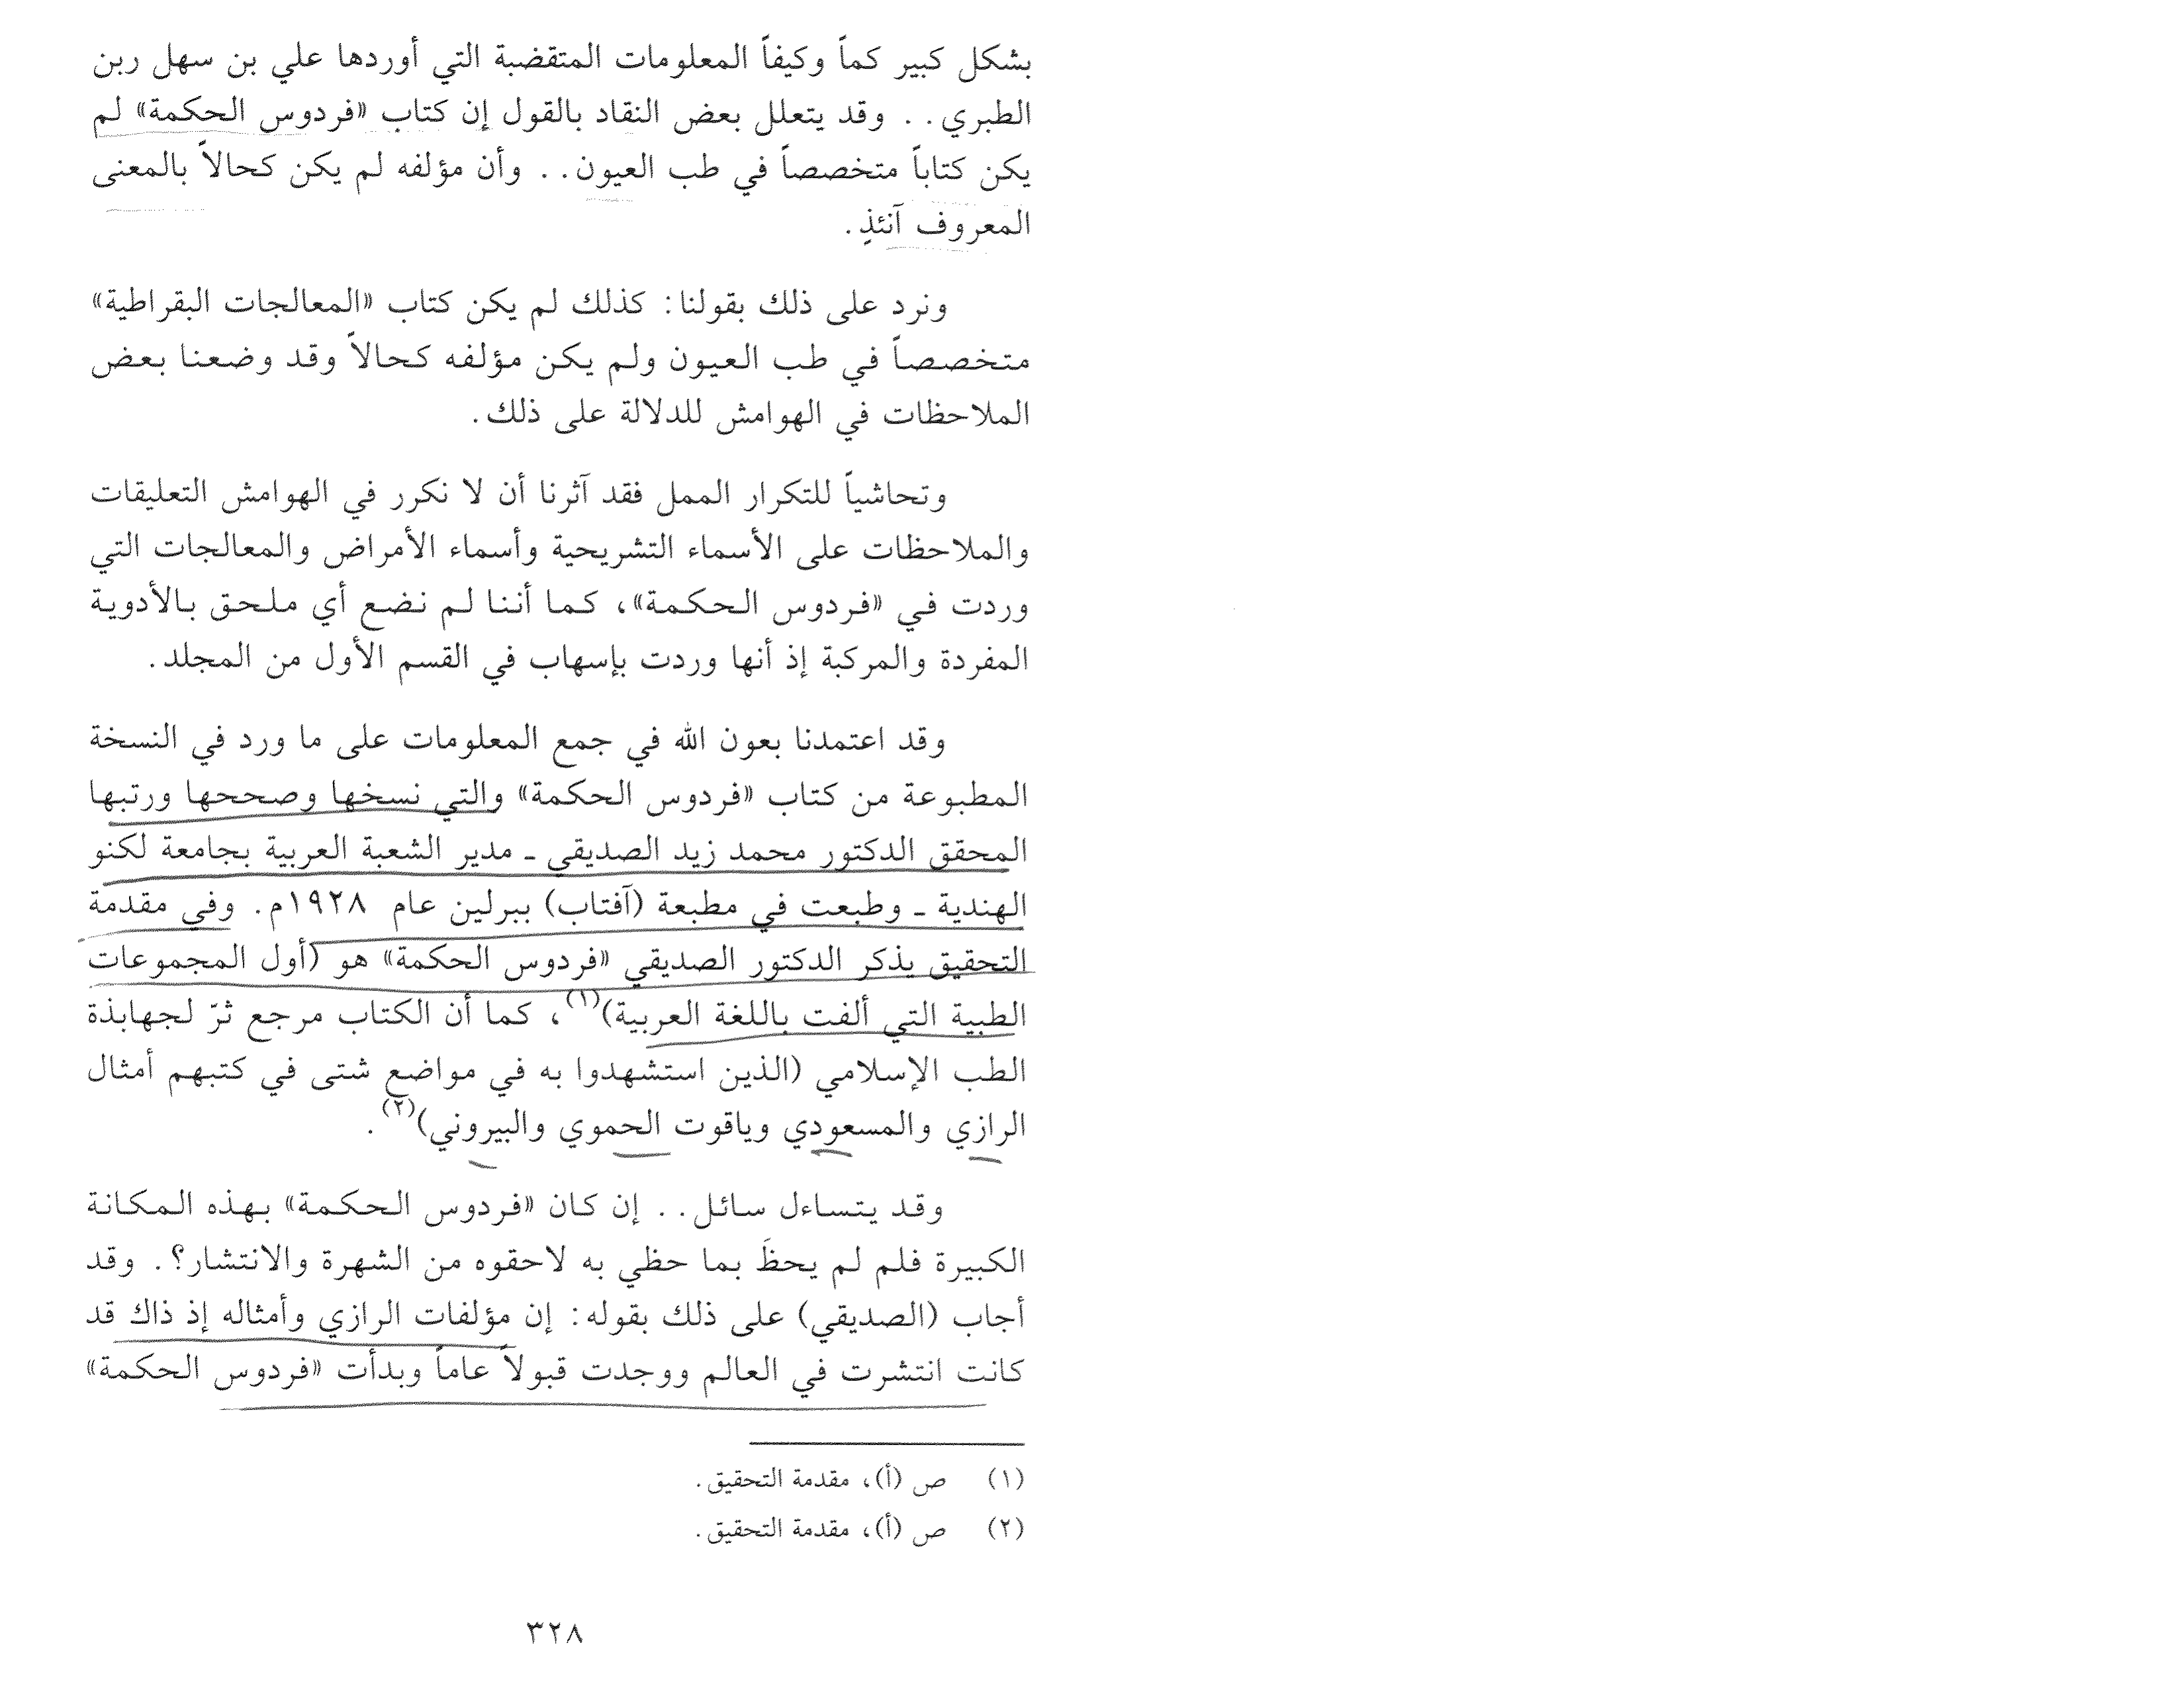 بشكل كبير كماً وكيفاً المعلومات المتقضبة التي أوردها علي بن سهل ربن
الطبري. . وقد يتعلل بعض النقاد بالقول إن كتاب «فردوس الحكمة» لم
يكن كتاباً متخصصاً في طب العيون. . وأن مؤلفه لم يكن كحالاً بالمعنى
المعروف آنئذٍ.
ونرد على ذلك بقولنا: كذلك لم يكن كتاب «المعالجات البقراطية»
متخصصاً في طب العيون ولم يكن مؤلفه كحالاً وقد وضعنا بعض
الملاحظات في الهوامش للدلالة على ذلك.
وتحاشياً للتكرار الممل فقد آثرنا أن لا نكرر في الهوامش التعليقات
والملاحظات على الأسماء التشريحية وأسماء الأمراض والمعالجات التي
وردت في «فردوس الحكمة»، كما أننا لم نضع أي ملحق بالأدوية
المفردة والمركبة إذ أنها وردت بإسهاب في القسم الأول من المجلد.
وقد اعتمدنا بعون الله في جمع المعلومات على ما ورد في النسخة
المطبوعة من كتاب «فردوس الحكمة» والتي نسخها وصححها ورتبها
المحقق الدكتور محمد زيد الصديقي ـ مدير الشعبة العربية بجامعة لكنو
الهندية ـ وطبعت في مطبعة (آفتاب) ببرلين عام ١٩٢٨م. وفي مقدمة
التحقيق يذكر الدكتور الصديقي «فردوس الحكمة» هو (أول المجموعات
الطبية التي ألفت باللغة العربية)(١)، كما أن الكتاب مرجع ثرّ لجهابذة
الطب الإسلامي (الذين استشهدوا به في مواضع شتى في كتبهم أمثال
الرازي والمسعودي وياقوت الحموي والبيروني)(٢).
وقد يتساءل سائل. . إن كان «فردوس الحكمة» بهذه المكانة
الكبيرة فلم لم يحظَ بما حظي به لاحقوه من الشهرة والانتشار؟. وقد
أجاب (الصديقي) على ذلك بقوله: إن مؤلفات الرازي وأمثاله إذ ذاك قد
كانت انتشرت في العالم ووجدت قبولاً عاماً وبدأت «فردوس الحكمة»
(١) ص (أ)، مقدمة التحقيق.
(٢) ص (أ)، مقدمة التحقيق.
٣٢٨